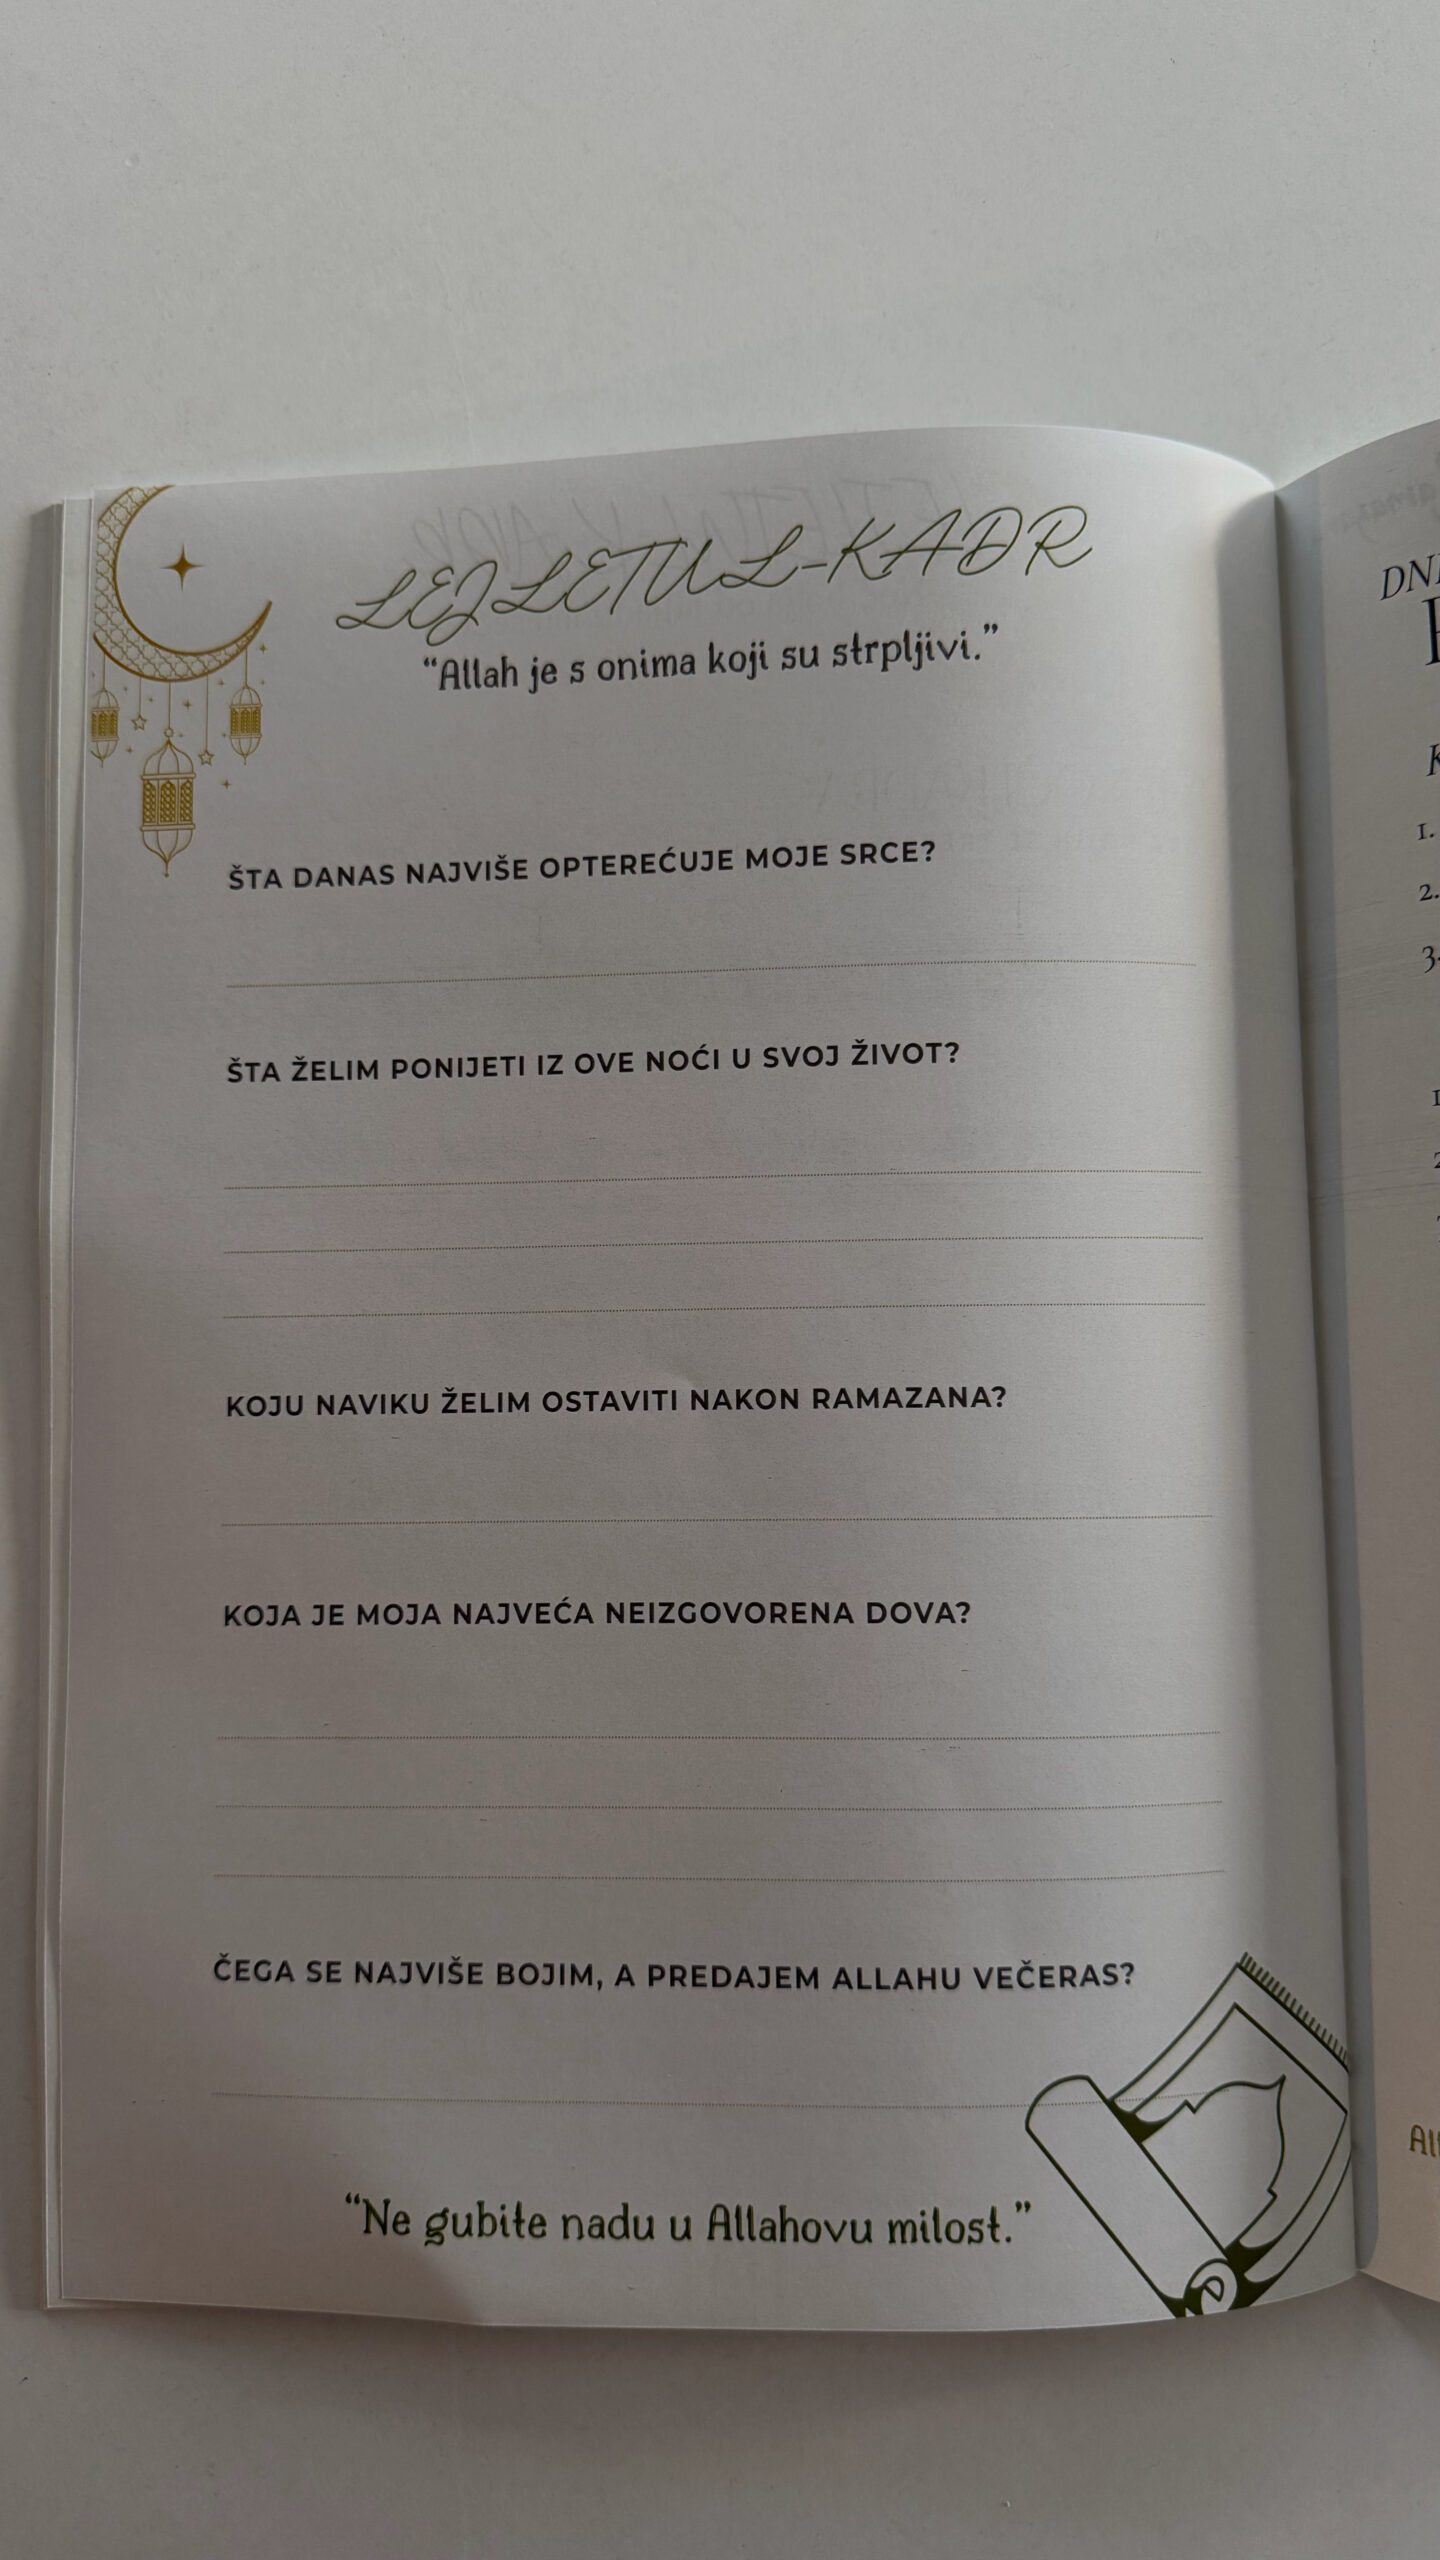 LEJLETUL-KADR
“Allah je s onima koji su strpljivi.”
ŠTA DANAS NAJVIŠE OPTEREĆUJE MOJE SRCE?
ŠTA ŽELIM PONIJETI IZ OVE NOĆI U SVOJ ŽIVOT?
KOJU NAVIKU ŽELIM OSTAVITI NAKON RAMAZANA?
KOJA JE MOJA NAJVEĆA NEIZGOVORENA DOVA?
ČEGA SE NAJVIŠE BOJIM, A PREDAJEM ALLAHU VEČERAS?
“Ne gubite nadu u Allahovu milost.”
1.
2.
3.